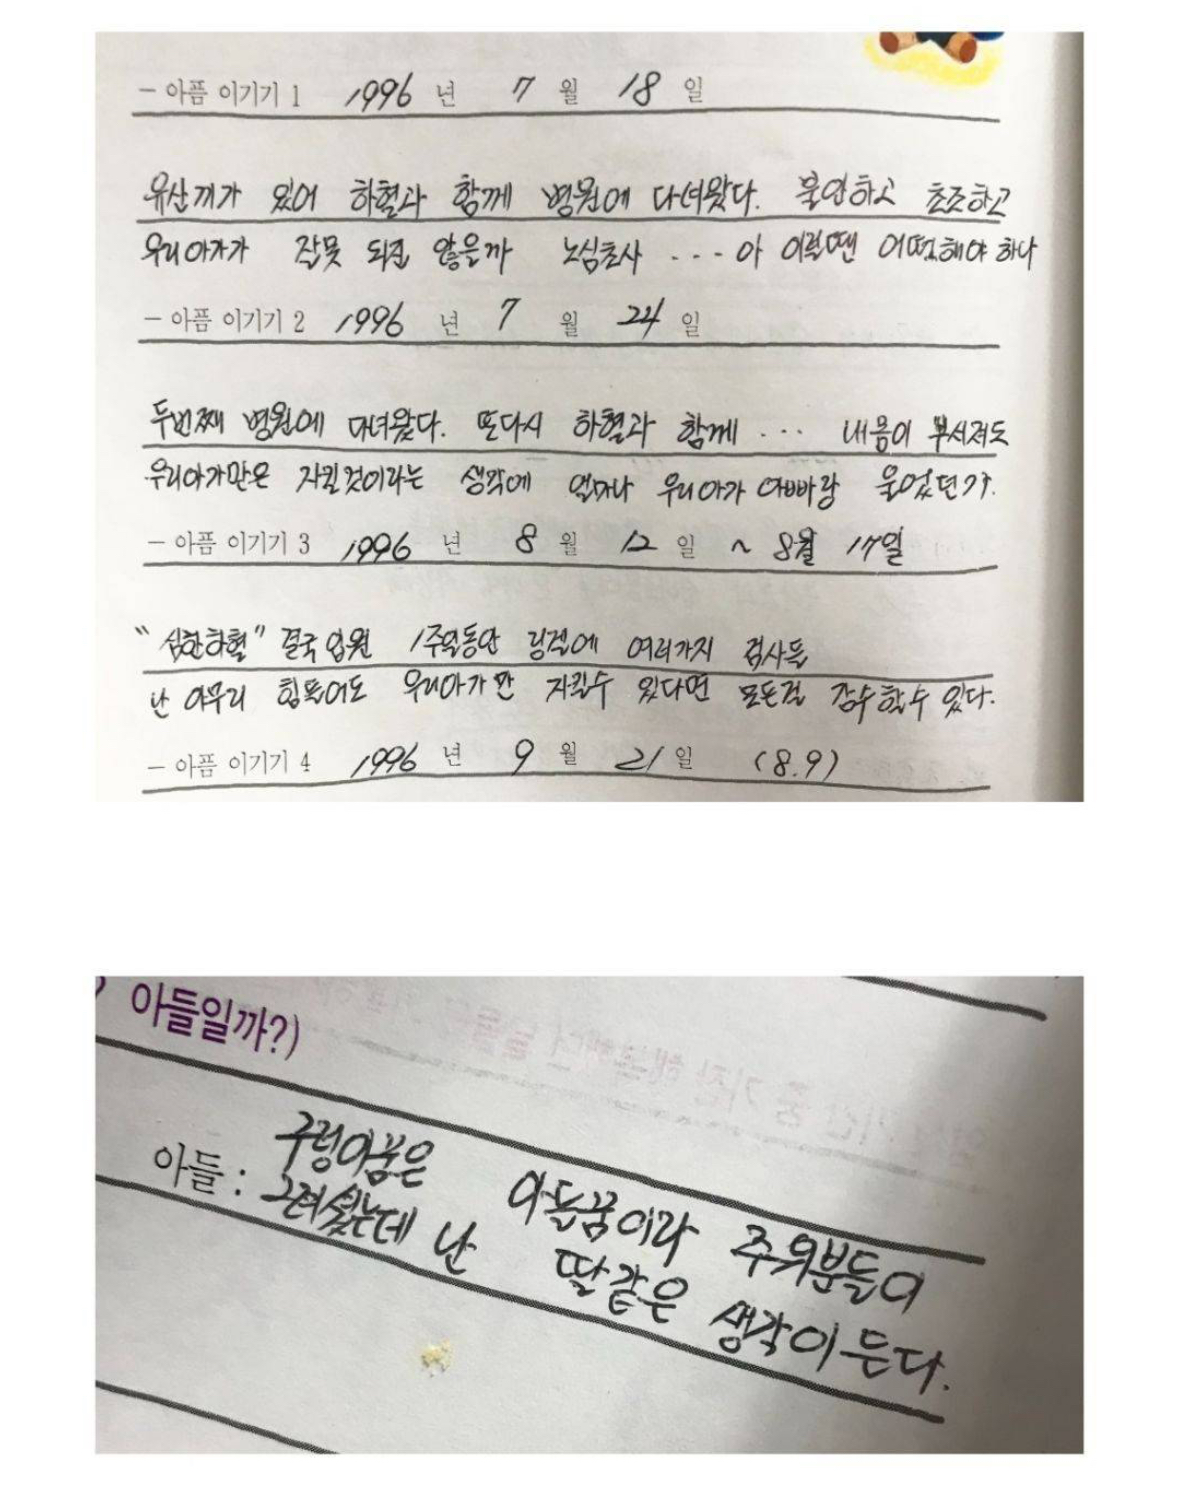 - 아픔 이기기 1 1996 년 7 월 18 일
유산끼가 있어 하혈과 함께 병원에 다녀왔다. 불안하고 초조하고
우리아가가 잘못 되진 않을까 노심초사 ... 아 이럴땐 어떡해야 하나
- 아픔 이기기 2 1996 년 7 월 24 일
두번째 병원에 다녀왔다. 또다시 하혈과 함께 ... 내몸이 부서져도
우리아가만은 지킬것이라는 생각에 얼마나 우리아가 아빠랑 울었던가.
- 아픔 이기기 3 1996 년 8 월 12 일 ~ 8월 17일
"심한하혈" 결국 입원 1주일동안 링겔에 여러가지 검사들
난 아무리 힘들어도 우리아가만 지킬수 있다면 모든걸 감수할수 있다.
- 아픔 이기기 4 1996 년 9 월 21 일 (8.9)
아들일까?)
구렁이꿈은 아들꿈이라 주위분들이
아들 : 그러셨는데 난 딸같은 생각이 든다.